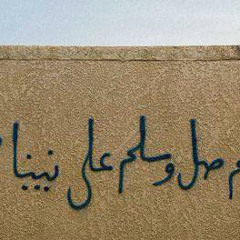 م صل وسلم على نبينا